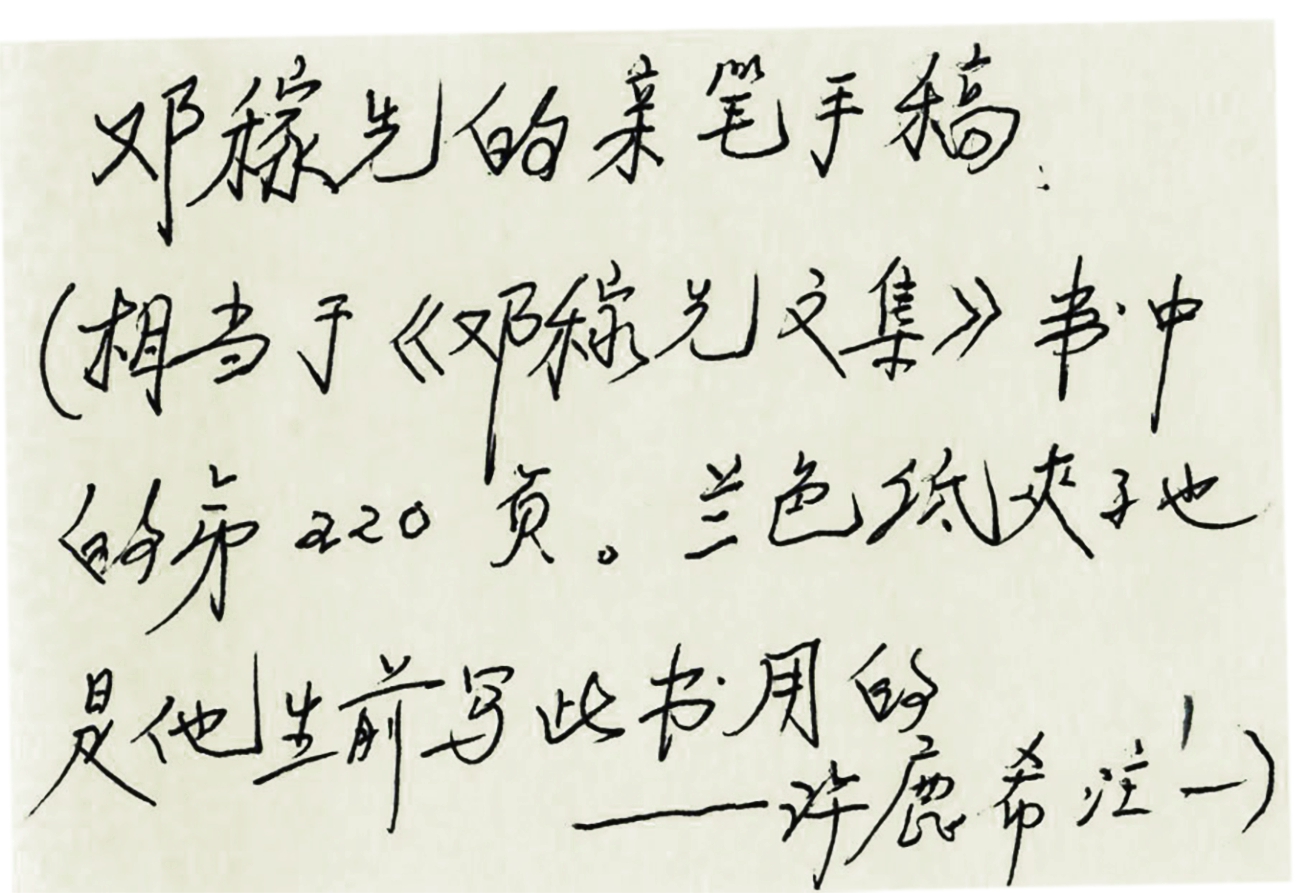 邓稼先的亲笔手稿.
(相当于《邓稼先文集》书中
的第220页。兰色纸夹子也
是他生前写此书用的
——许鹿希注)